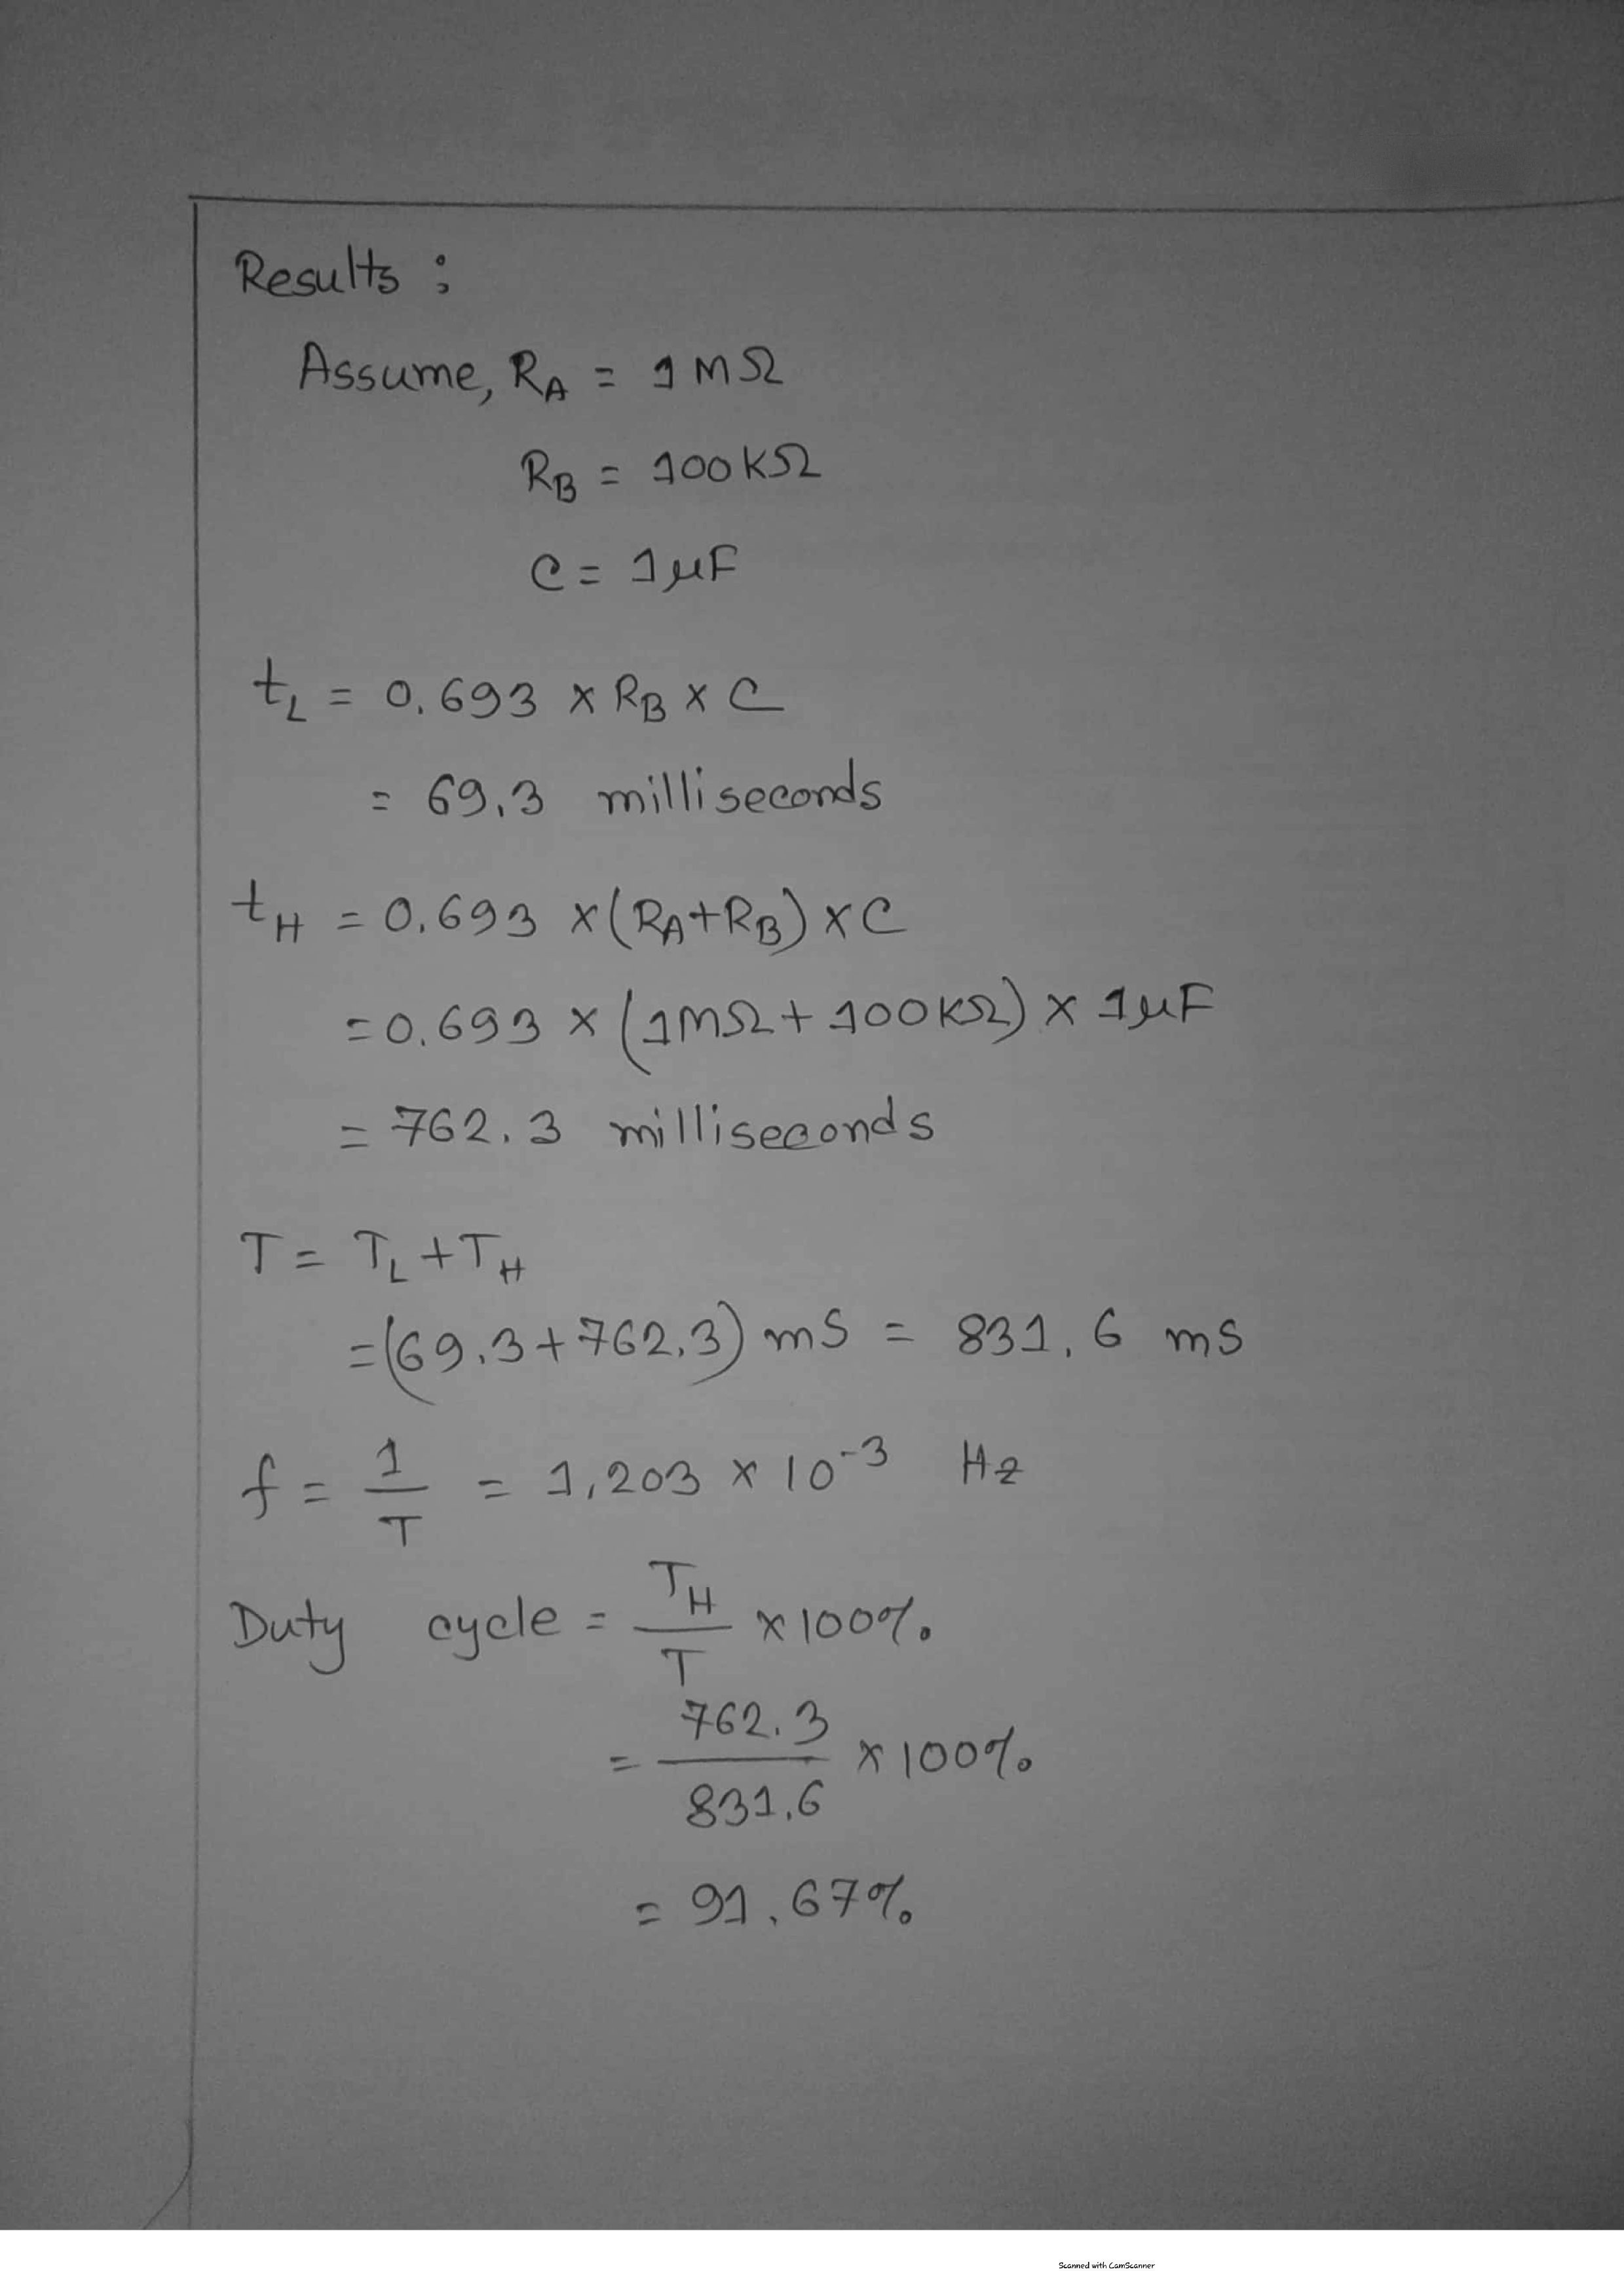 Results :
Assume, R_A = 1 MΩ
R_B = 100 KΩ
C = 1 μF
t_L = 0.693 × R_B × C
= 69.3 milliseconds
t_H = 0.693 × (R_A + R_B) × C
= 0.693 × (1MΩ + 100KΩ) × 1μF
= 762.3 milliseconds
T = T_L + T_H
= (69.3 + 762.3) mS = 831.6 ms
f = 1/T = 1.203 × 10⁻³ Hz
Duty cycle = T_H/T × 100%
= 762.3/831.6 × 100%
= 91.67%
Scanned with CamScanner